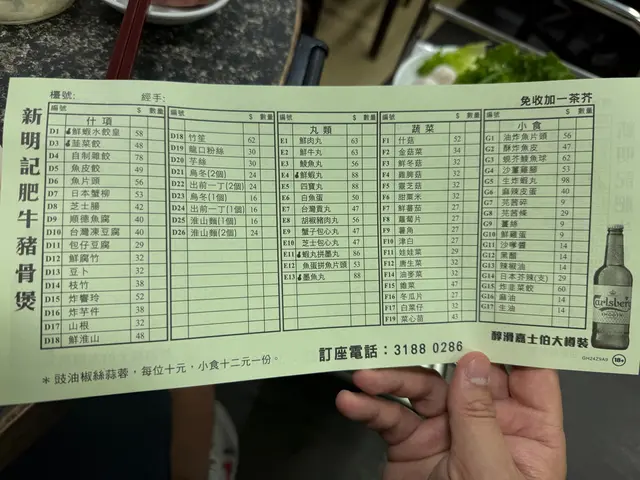 新明記肥牛豬骨煲
檯號: 經手: 免收加一茶芥
編號 什項 $ 數量
D1 鮮蝦水餃皇 58
D3 韮菜餃 48
D4 自制雜餃 78
D5 魚皮餃 49
D6 魚片頭 56
D7 日本蟹柳 53
D8 芝士腸 42
D9 順德魚腐 40
D10 台灣凍豆腐 40
D11 包仔豆腐 29
D12 鮮腐竹 32
D13 豆卜 32
D14 枝竹 38
D15 炸響鈴 52
D16 炸芋件 38
D17 山根 32
D18 鮮淮山 48
編號 $ 數量
D18 竹笙 62
D19 龍口粉絲 30
D20 芋絲 30
D21 烏冬(2個) 24
D22 出前一丁(2個) 24
D23 烏冬(1個) 16
D24 出前一丁(1個) 16
D25 淮山麵(1個) 16
D26 淮山麵(2個) 24
編號 丸類 $ 數量
E1 鮮肉丸 63
E2 鮮牛丸 63
E3 鯪魚丸 56
E4 鮮蝦丸 88
E5 四寶丸 88
E6 白魚蛋 50
E7 台灣貢丸 47
E8 胡椒豬肉丸 56
E9 蟹子包心丸 47
E10 芝士包心丸 47
E11 蝦丸拼墨丸 86
E12 魚蛋拼魚片頭 53
E13 墨魚丸 88
編號 蔬菜 $ 數量
F1 什菇 52
F2 金菇菜 34
F3 鮮冬菇 32
F4 雞脾菇 32
F5 靈芝菇 32
F6 甜粟米 32
F7 鮮蕃茄 27
F8 蘿蔔片 27
F9 薯角 27
F10 津白 27
F11 娃娃菜 29
F12 唐生菜 32
F14 油麥菜 32
F15 維菜 29
F16 冬瓜片 27
F17 白菜仔 32
F19 菜心苗 43
編號 小食 $ 數量
G1 油炸魚片頭 56
G2 酥炸魚皮 47
G3 蝦芥鯪魚球 62
G4 沙薑雞腳 53
G5 生炸蝦丸 98
G6 麻辣皮蛋 40
G7 芫茜碎 9
G8 芫茜條 29
G9 薑絲 9
G10 鮮雞蛋 9
G11 沙嗲醬 14
G12 黑醋 14
G13 辣椒油 14
G14 日本芥辣(支) 29
G15 炸韮菜餃 60
G16 麻油 14
G17 生油 14
Carlsberg
訂座電話：3188 0286
醇滑嘉士伯大罇裝
18+
＊豉油椒絲蒜蓉，每位十元，小食十二元一份。